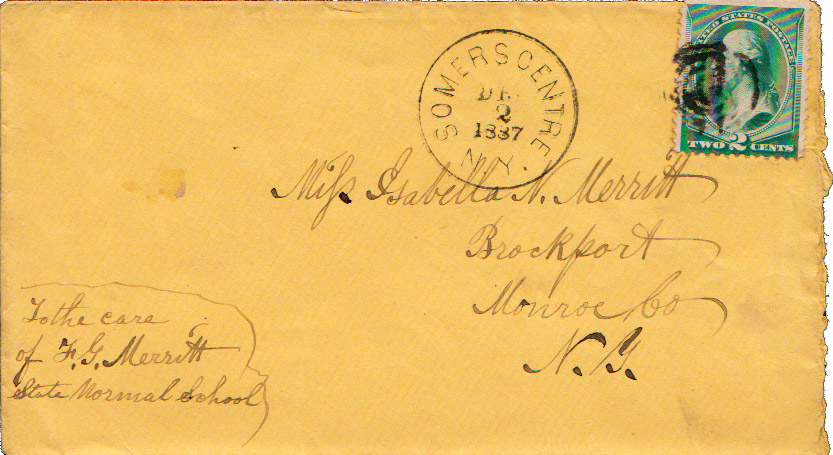 SOMERS CENTRE
DE
2
1887
N.Y.
UNITED STATES POSTAGE
TWO 2 CENTS
Miss Isabella N. Merritt
Brockport
Monroe Co
N. Y.
To the care
of F. G. Merritt
State Normal School